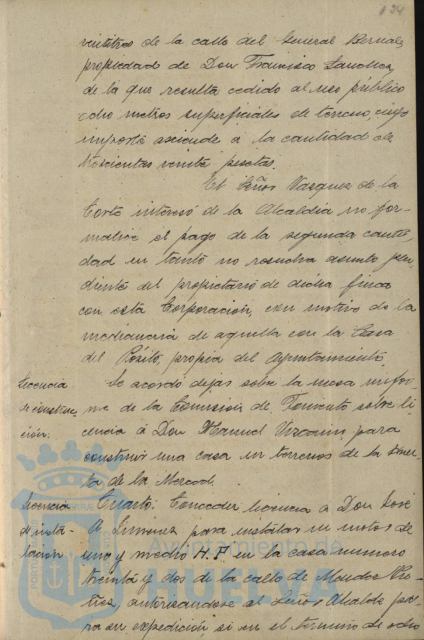 124
ventitres de la calle del General Bernal,
propiedad de Don Francisco Sanchez,
de la que resulta cedido al uso público
ocho metros superficiales de terreno, cuyo
importe asciende a la cantidad de
trescientas veinte pesetas.
El Señor Vazquez de la
Corte interesó de la Alcaldia no for-
malice el pago de la segunda canti-
dad en tanto no resuelva asunto pen-
diente del propietario de dicha finca
con esta Corporación, con motivo de la
medianeria de aquella con la Casa
del Pósito, propia del Ayuntamiento.
Licencia
de construc-
ción.
Se acordó dejar sobre la mesa infor-
me de la Comisión de Fomento sobre li-
cencia á Don Manuel Vizcaino para
construir una casa en terrenos de la Huer-
ta de la Merced.
Licencia
de insta-
lación.
Cuarto: Conceder licencia á Don José
A. Jimenez para instalar un motor de
uno y medio H.P. en la casa número
treinta y dos de la calle de Mendez Nu-
ñez, autorizandose al Señor Alcalde pa-
ra su expedición, si en el termino de ocho
Ayuntamiento de
HUELVA